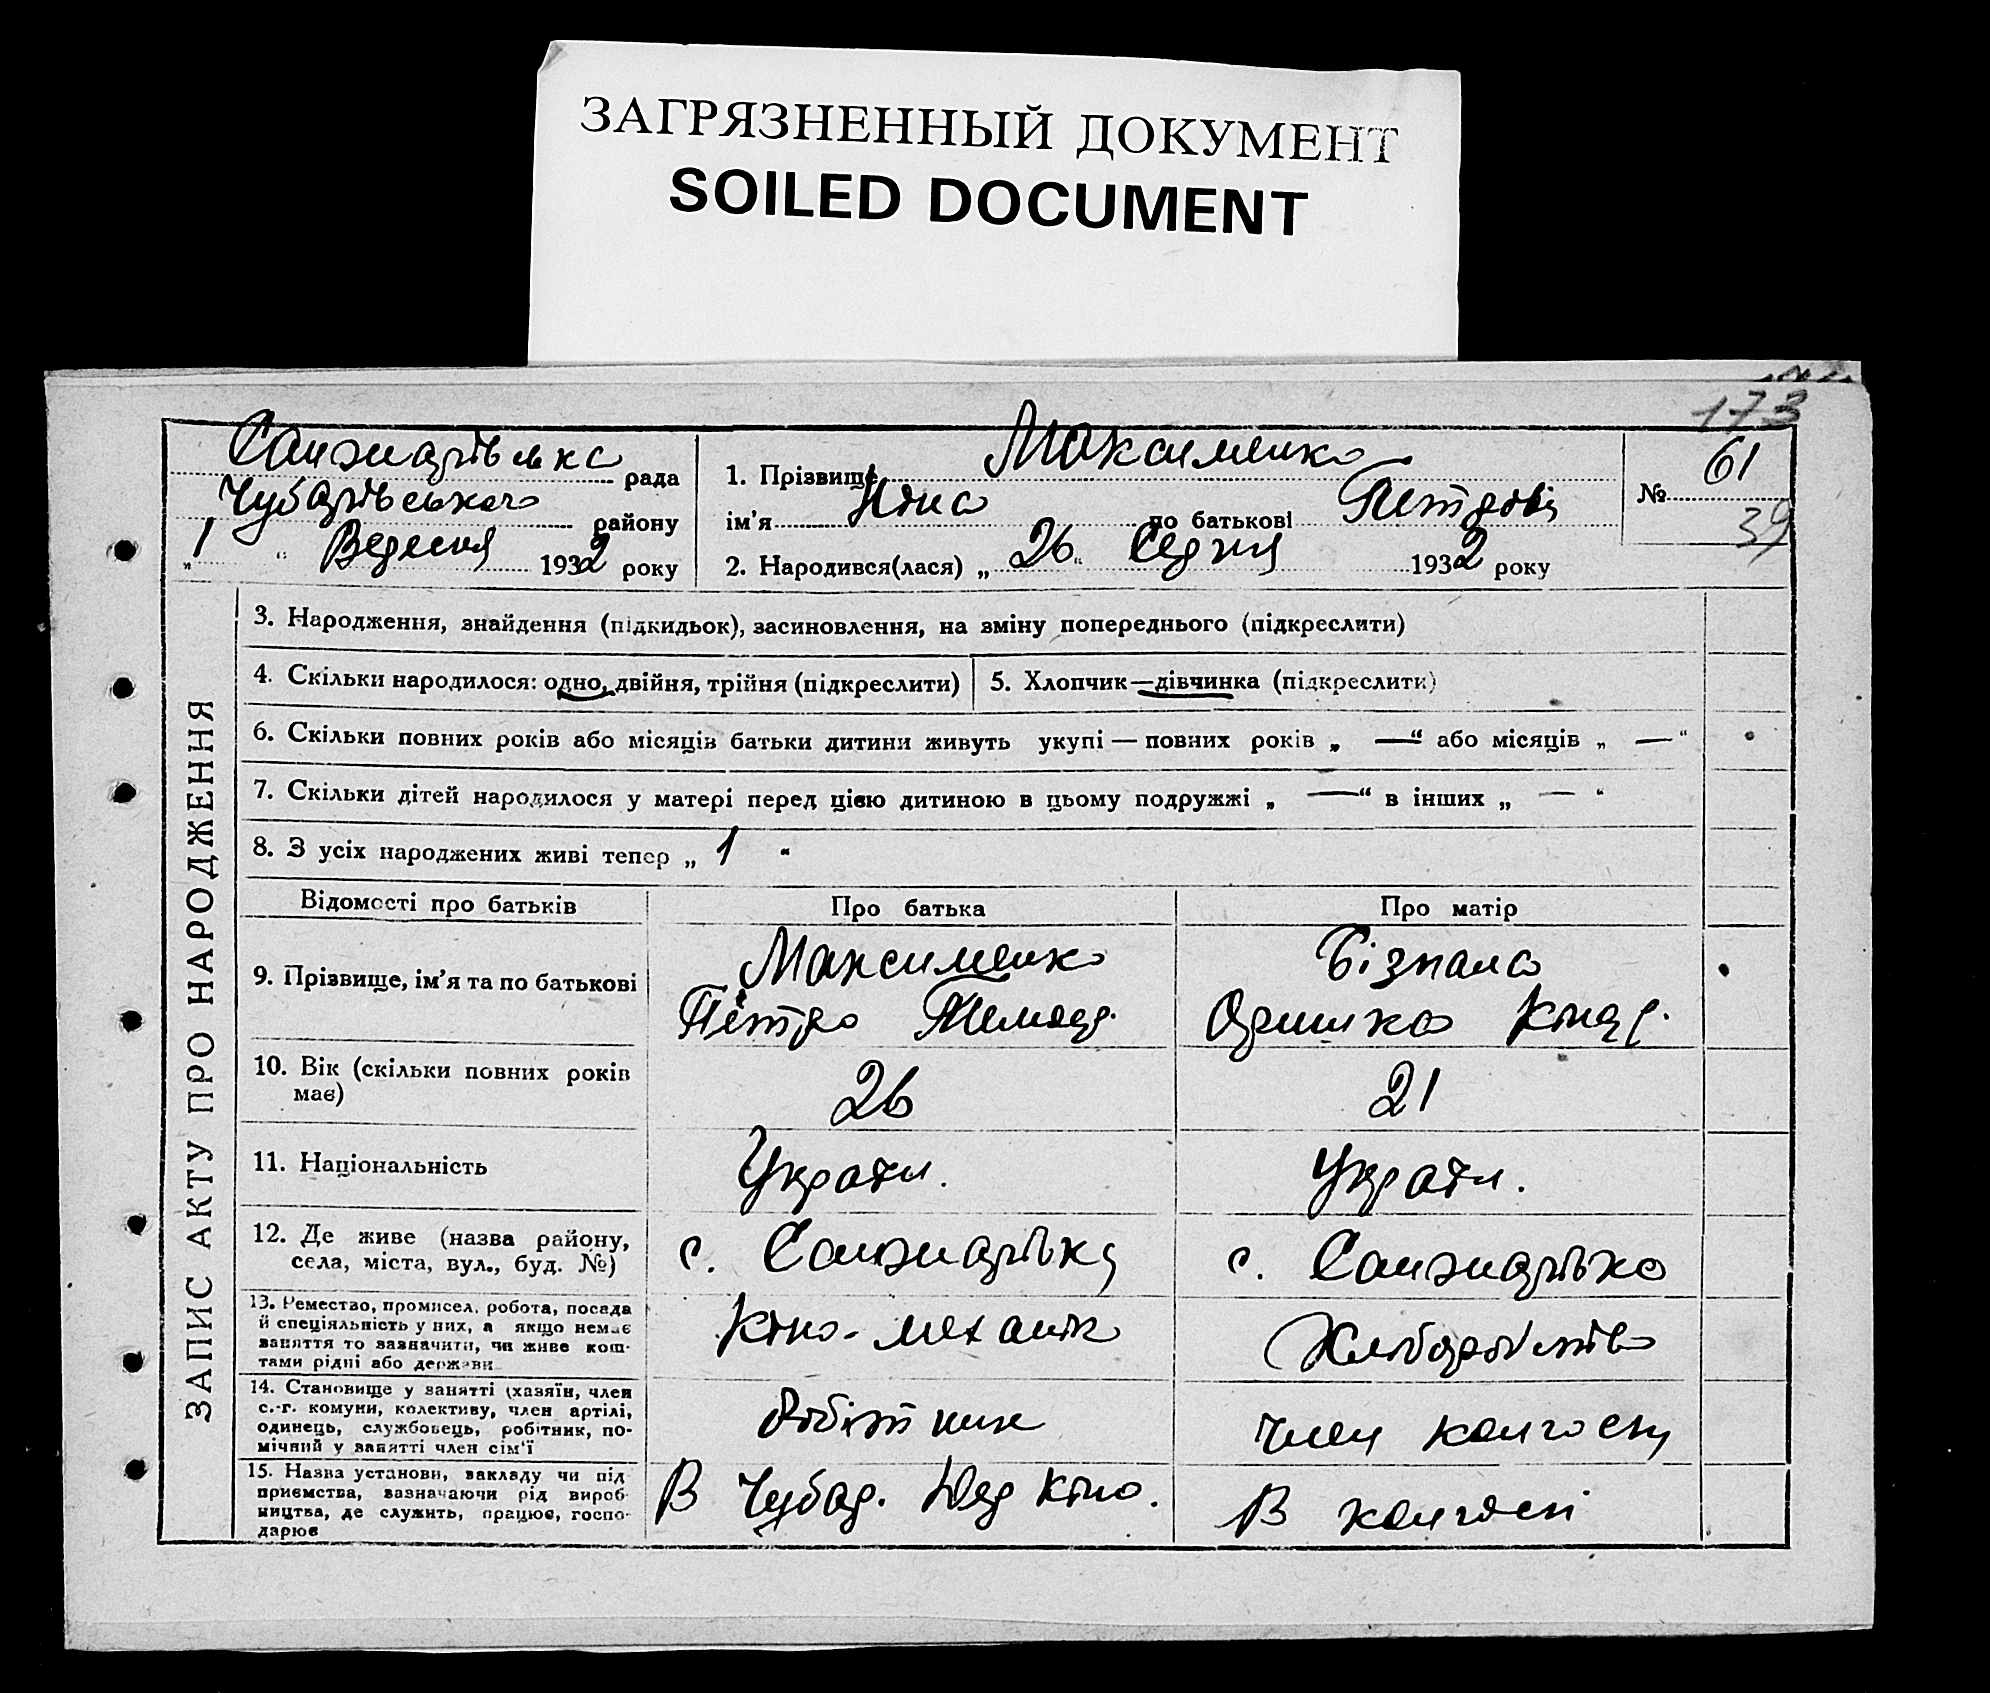 ЗАГРЯЗНЕННЫЙ ДОКУМЕНТ
SOILED DOCUMENT
173
Санжарівська рада
Чубарівського району
„ 1 “ Вересня 1932 року
1. Прізвище Максименко
ім'я Ніна по батькові Петрові
2. Народився(лася) „ 26 “ Серпня 1932 року
№ 61
39
ЗАПИС АКТУ ПРО НАРОДЖЕННЯ
3. Народження, знайдення (підкидьок), засиновлення, на зміну попереднього (підкреслити)
4. Скільки народилося: одно, двійня, трійня (підкреслити)
5. Хлопчик—дівчинка (підкреслити)
6. Скільки повних років або місяців батьки дитини живуть укупі — повних років „ — “ або місяців „ — “
7. Скільки дітей народилося у матері перед цією дитиною в цьому подружжі „ — “ в інших „ — “
8. З усіх народжених живі тепер „ 1 “
Відомості про батьків
Про батька
Про матір
9. Прізвище, ім'я та по батькові
Максименко
Петро
Бізнала
Оришка Конд.
10. Вік (скільки повних років має)
26
21
11. Національність
Україн.
Україн.
12. Де живе (назва району,
села, міста, вул., буд. №)
с. Санжарівка
с. Санжарівка
13. Ремество, промисел, робота, посада
й спеціяльність у них, а якщо немає
заняття то зазначити, чи живе кош-
тами рідні або держави
Кіно-механік
Хліборобство
14. Становище у занятті (хазяїн, член
с.-г. комуни, колективу, член артілі,
одинець, службовець, робітник, по-
мічний у занятті член сім'ї
Робітник
Член колгоспу
15. Назва установи, закладу чи під
приємства, зазначаючи рід вироб-
ництва, де служить, працює, госпо-
дарює
В Чубар. кіно.
В колгоспі